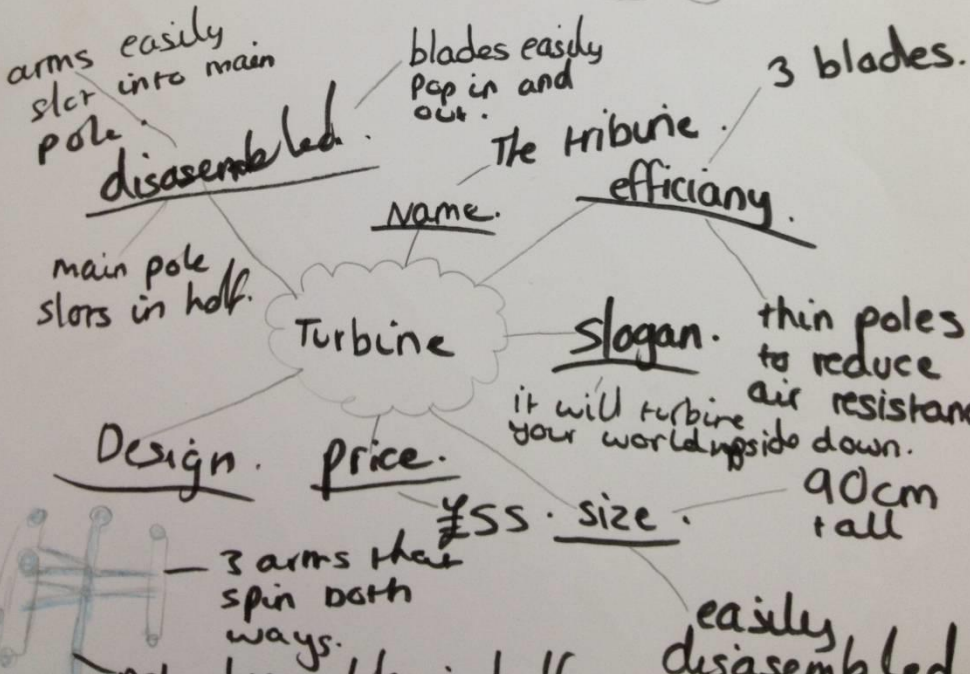 arms easily
slot into main
pole.
blades easily
pop in and
out.
3 blades.
disasembled.
The tribune.
Name.
efficiany.
main pole
slots in half.
Turbine
Slogan.
thin poles
to reduce
air resistan
it will turbine
your world upside down.
Design.
price.
£55.
size.
90cm
tall
3 arms that
spin both
ways.
easily
disasembled